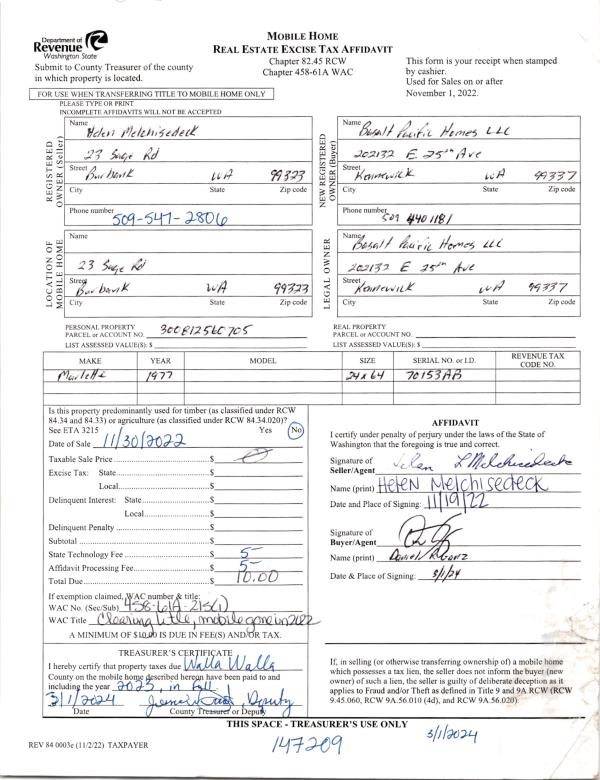 Department of
Revenue
Washington State
Submit to County Treasurer of the county
in which property is located.
MOBILE HOME
REAL ESTATE EXCISE TAX AFFIDAVIT
Chapter 82.45 RCW
Chapter 458-61A WAC
This form is your receipt when stamped
by cashier.
Used for Sales on or after
November 1, 2022.
FOR USE WHEN TRANSFERRING TITLE TO MOBILE HOME ONLY
PLEASE TYPE OR PRINT
INCOMPLETE AFFIDAVITS WILL NOT BE ACCEPTED
REGISTERED OWNER (Seller)
Name
Helen Melchisedeck
23 Sage Rd
Street
Burbank WA 99323
City State Zip code
Phone number
509-547-2806
NEW REGISTERED OWNER (Buyer)
Name
Basalt Pacific Homes LLC
202132 E 25th Ave
Street
Kennewick WA 99337
City State Zip code
Phone number
509 4401181
LOCATION OF MOBILE HOME
Name
23 Sage Rd
Street
Burbank WA 99323
City State Zip code
LEGAL OWNER
Name
Basalt Pacific Homes LLC
202132 E 25th Ave
Street
Kennewick WA 99337
City State Zip code
PERSONAL PROPERTY
PARCEL or ACCOUNT NO. 300812560705
LIST ASSESSED VALUE(S): $
REAL PROPERTY
PARCEL or ACCOUNT NO.
LIST ASSESSED VALUE(S): $
MAKE YEAR MODEL SIZE SERIAL NO. or I.D. REVENUE TAX CODE NO.
Marlette 1977 24x64 70153AB
Is this property predominantly used for timber (as classified under RCW
84.34 and 84.33) or agriculture (as classified under RCW 84.34.020)?
See ETA 3215 Yes No
Date of Sale 11/30/2022
Taxable Sale Price $ 0
Excise Tax: State $
Local $
Delinquent Interest: State $
Local $
Delinquent Penalty $
Subtotal $
State Technology Fee $ 5-
Affidavit Processing Fee $ 5-
Total Due $ 10.00
If exemption claimed, WAC number & title:
WAC No. (Sec/Sub) 458-61A-215(1)
WAC Title Clearing title, mobile gone in 2022
A MINIMUM OF $10.00 IS DUE IN FEE(S) AND/OR TAX.
AFFIDAVIT
I certify under penalty of perjury under the laws of the State of
Washington that the foregoing is true and correct.
Signature of
Seller/Agent Helen L Melchisedeck
Name (print) HELEN MElCHISEDECK
Date and Place of Signing: 11/19/22
Signature of
Buyer/Agent
Name (print) Daniel
Date & Place of Signing: 3/1/24
TREASURER'S CERTIFICATE
I hereby certify that property taxes due Walla Walla
County on the mobile home described hereon have been paid to and
including the year 2023, in full.
3/1/2024 Deputy
Date County Treasurer or Deputy
If, in selling (or otherwise transferring ownership of) a mobile home
which possesses a tax lien, the seller does not inform the buyer (new
owner) of such a lien, the seller is guilty of deliberate deception as it
applies to Fraud and/or Theft as defined in Title 9 and 9A RCW (RCW
9.45.060, RCW 9A.56.010 (4d), and RCW 9A.56.020).
THIS SPACE - TREASURER'S USE ONLY
REV 84 0003e (11/2/22) TAXPAYER
147209
3/1/2024